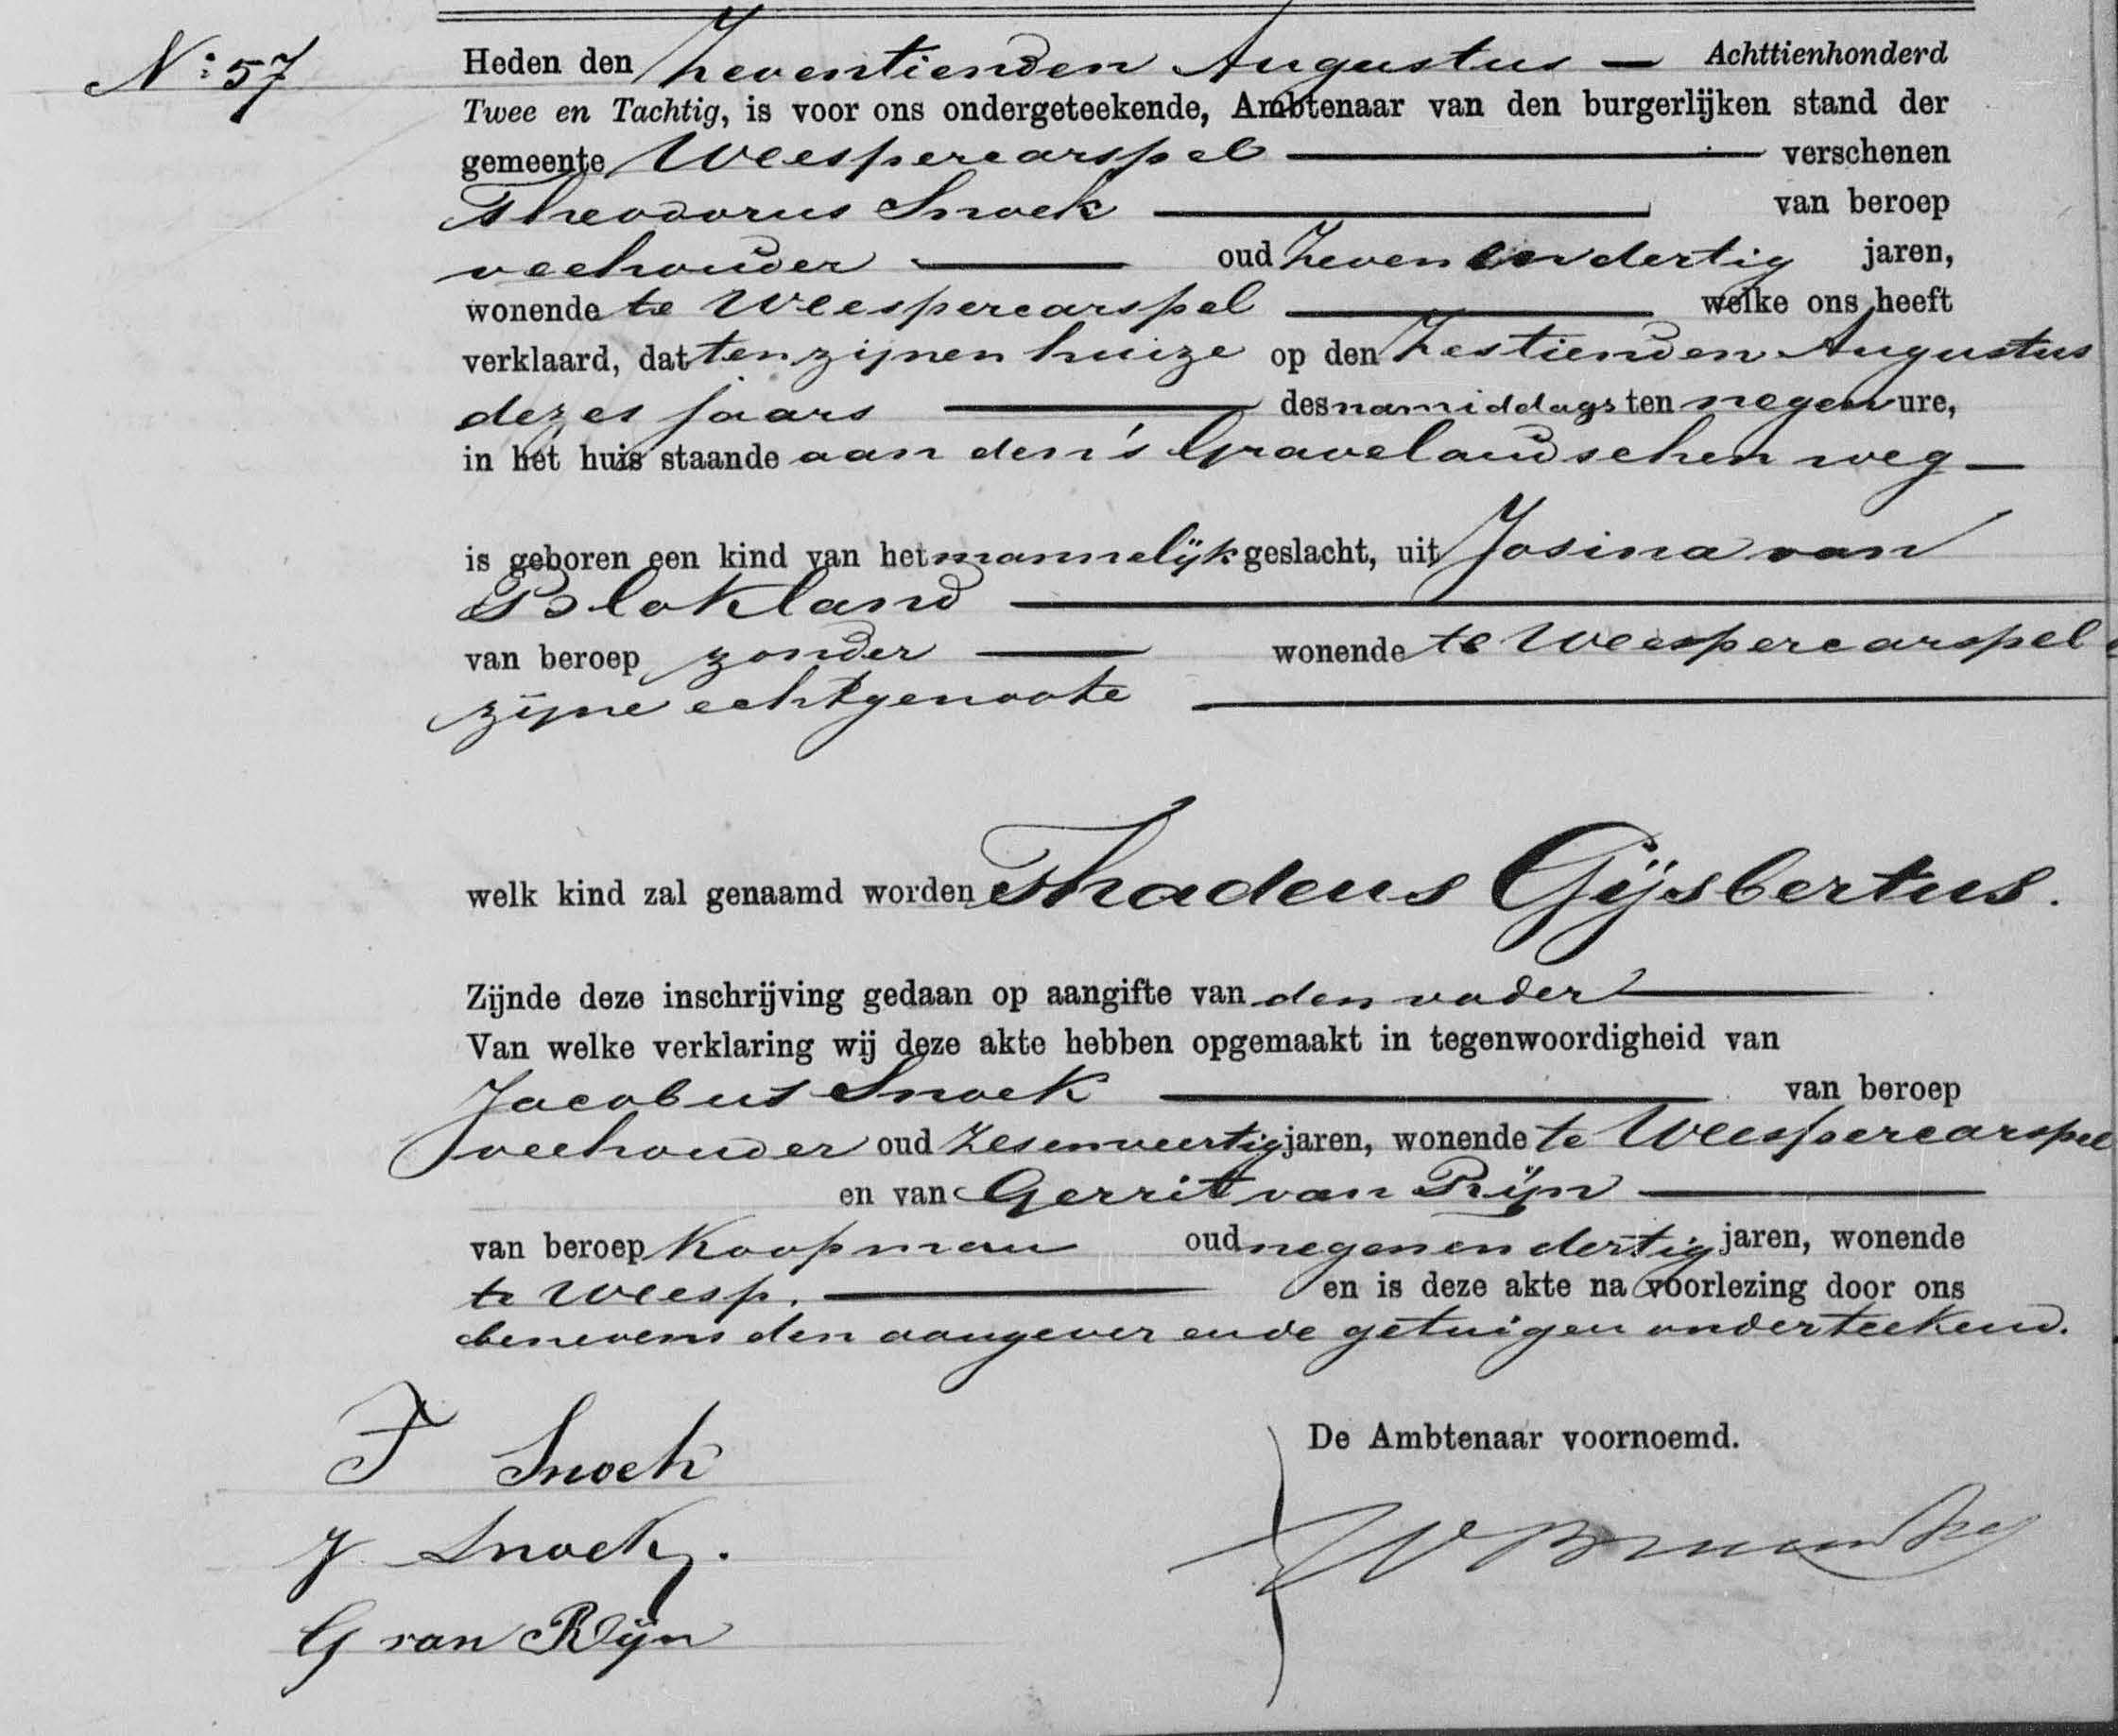 No: 57
Heden den Zeventienden Augustus — Achttienhonderd
Twee en Tachtig, is voor ons ondergeteekende, Ambtenaar van den burgerlijken stand der
gemeente Weespercarspel — verschenen
Theodorus Snoek — van beroep
veehouder — oud Zeven en dertig jaren,
wonende te Weespercarspel — welke ons heeft
verklaard, dat ten zijnen huize op den Zestienden Augustus
dezes jaars — des namiddags ten negen ure,
in het huis staande aan den 's Gravelandschen weg —
is geboren een kind van het mannelijk geslacht, uit Josina van
Blokland —
van beroep zonder — wonende te Weespercarspel
zijne echtgenoote —
welk kind zal genaamd worden Thadeus Gijsbertus.
Zijnde deze inschrijving gedaan op aangifte van den vader —
Van welke verklaring wij deze akte hebben opgemaakt in tegenwoordigheid van
Jacobus Snoek — van beroep
veehouder oud Zesenveertig jaren, wonende te Weespercarspel
en van Gerrit van Rijn —
van beroep Koopman oud negenendertig jaren, wonende
te Weesp. — en is deze akte na voorlezing door ons
benevens den aangever en de getuigen onderteekend.
T Snoek
De Ambtenaar voornoemd.
J Snoek.
G van Rijn